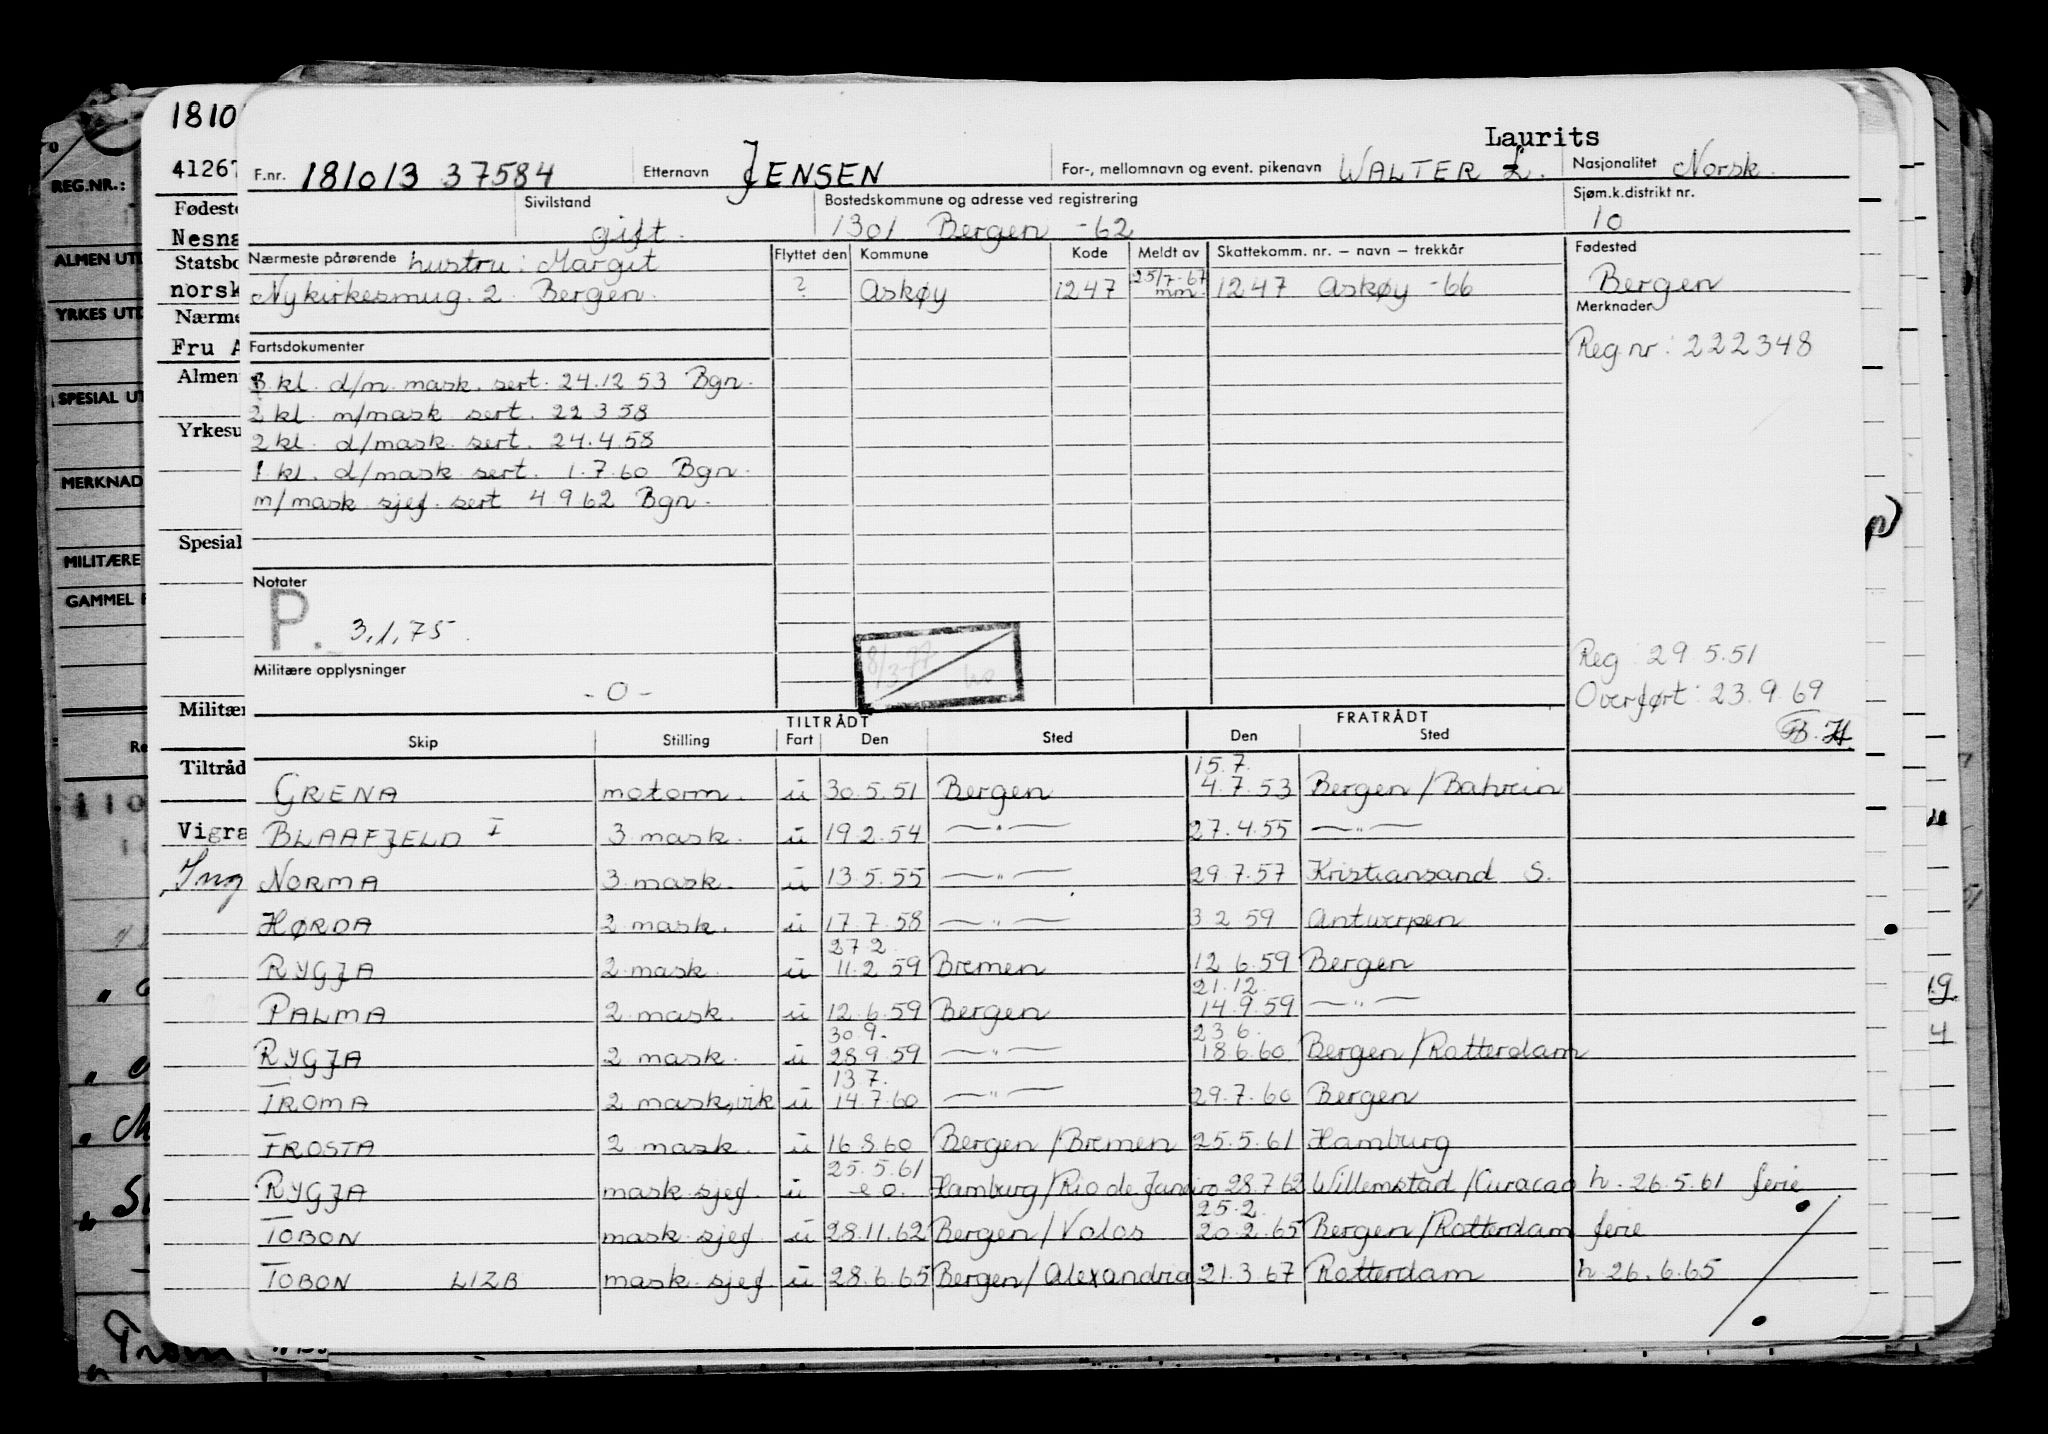 Laurits
F.nr. 181013 37584 Etternavn JENSEN For-, mellomnavn og event. pikenavn WALTER L. Nasjonalitet Norsk.
Sivilstand gift. Bostedskommune og adresse ved registrering 1301 Bergen -62 Sjøm.k.distrikt nr. 10
Nærmeste pårørende hustru: Margit Flyttet den Kommune Kode Meldt av Skattekomm. nr. – navn – trekkår Fødested
Nykirkesmug. 2 Bergen. ? Askøy 1247 25/7-67 mm. 1247 Askøy -66 Bergen
Merknader
Reg nr: 222348
Fartsdokumenter
3 kl. d/m. mask. sert. 24.12 53 Bgn.
2 kl. m/mask sert. 22 3 58
2 kl. d/mask. sert. 24.4.58
1 kl. d/mask sert. 1.7.60 Bgn.
m/mask sjef. sert 4 9 62 Bgn.
Notater
P. 3.1.75.
8/3-77
Militære opplysninger
-0-
Reg: 29 5.51
Overført: 23.9.69
B.H.
TILTRÅDT FRATRÅDT
Skip Stilling Fart Den Sted Den Sted
15.7.
GRENA motorm. u 30.5.51 Bergen 4.7.53 Bergen/Bahrein
BLAAFJELD I 3 mask. u 19.2.54 —"— 27.4.55 —"—
NORMA 3 mask. u 13.5.55 —"— 29.7.57 Kristiansand S.
HØRDA 2 mask. u 17.7.58 —"— 3 2 59 Antwerpen
27 2.
RYGJA 2 mask. u 11.2 59 Bremen 12 6.59 Bergen
21.12.
PALMA 2 mask. u 12.6.59 Bergen 14.9.59 —"—
30.9. 23 6.
RYGJA 2 mask. u 28.9.59 —"— 18.6.60 Bergen/Rotterdam
13 7.
TROMA 2 mask,vik u 14.7.60 —"— 29.7.60 Bergen
FROSTA 2 mask. u 16.8.60 Bergen/Bremen 25.5.61 Hamburg
25.5.61
RYGJA mask sjef. u e o. Hamburg/Rio de Janeiro 28.7 62 Willemstad/Curacao h. 26.5.61 ferie
25.2.
TOBON mask sjef u 28.11.62 Bergen/Volos 20.2.65 Bergen/Rotterdam ferie
TOBON LIZB mask. sjef. u 28.6.65 Bergen/Alexandria 21.3.67 Rotterdam h 26.6.65
1810
4126
Fødeste
Nesna
Statsbo
norsk
Nærme
Fru A
Almen
Yrkesu
Spesial
Militær
Tiltråd
Vigra
REG.NR.:
ALMEN UT
YRKES UT
SPESIAL UT
MERKNAD
MILITÆRE
GAMMEL